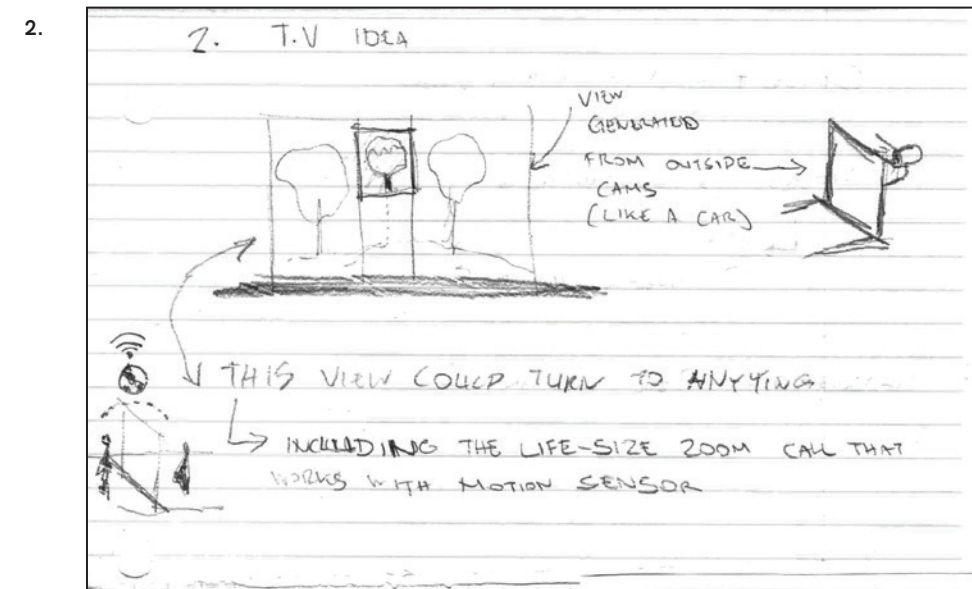 2.
2. T.V IDEA
VIEW
GENERATED
FROM OUTSIDE
CAMS
(LIKE A CAR)
THIS VIEW COULD TURN TO ANYTING
INCLUDING THE LIFE-SIZE ZOOM CALL THAT
WORKS WITH MOTION SENSOR